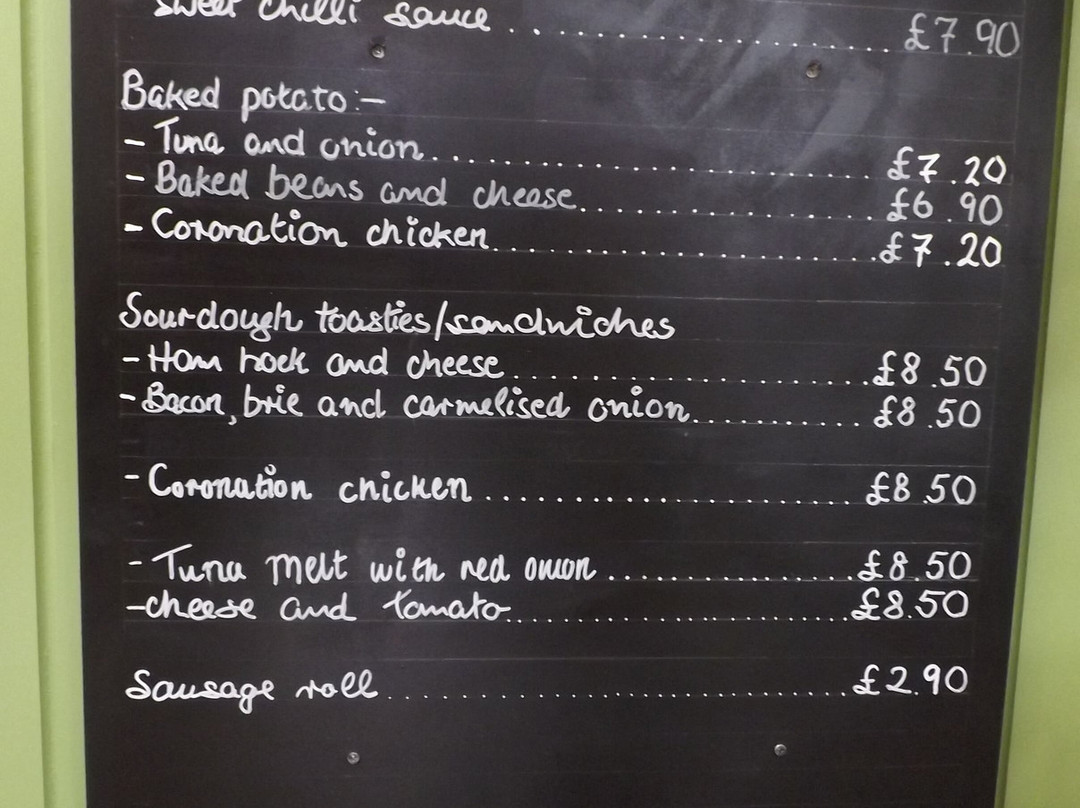 sweet chilli sauce .................... £7.90
Baked potato:-
- Tuna and onion.......................... £7.20
- Baked beans and cheese................ £6.90
- Coronation chicken...................... £7.20
Sourdough toasties/sandwiches
- Ham hock and cheese.................... £8.50
- Bacon, brie and carmelised onion............ £8.50
- Coronation chicken ..................... £8.50
- Tuna melt with red onion ................ £8.50
- cheese and tomato...................... £8.50
Sausage roll ............................ £2.90